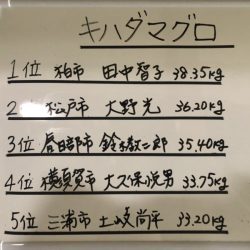 キハダマグロ
1位 柏市 田中智子 38.35kg
2 松戸市 大野光 36.20kg
3位 春日部市 鈴木敬二郎 35.40kg
4位 横須賀市 大久保悦男 33.75kg
5位 三浦市 土岐尚平 33.20kg